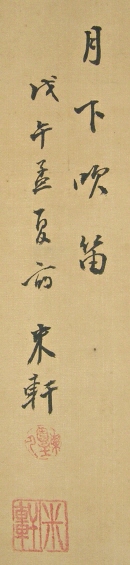 月下吹笛
戊午孟夏前 米軒
米軒